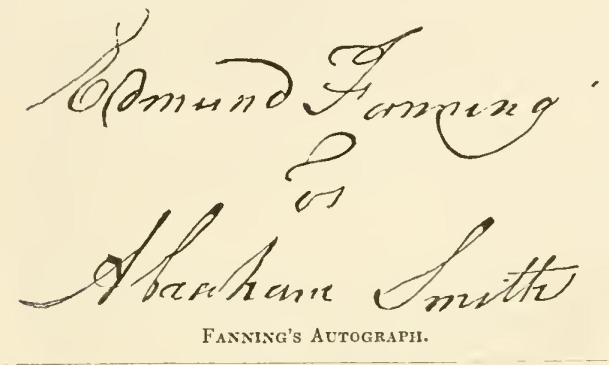 Edmund Fanning
vs
Abraham Smith
FANNING'S AUTOGRAPH.